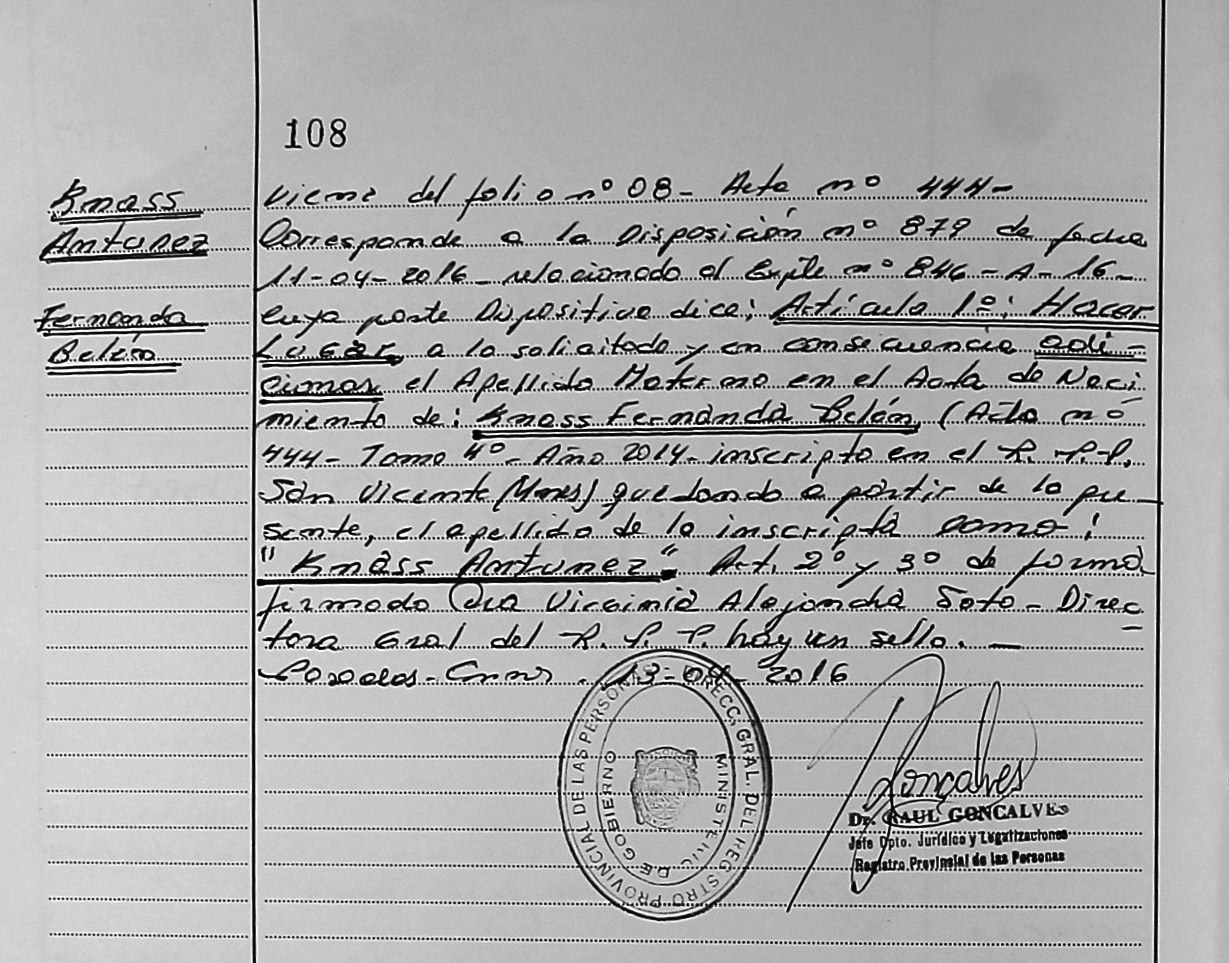 108
Knass
Antunez
Fernanda
Belén
Viene del folio nº 08- Acta nº 444-
Corresponde a la Disposición nº 879 de fecha
11-04-2016- relacionado al Expte nº 846-A-16-
cuya parte Dispositiva dice; Artículo 1º: Hacer
Lugar, a lo solicitado y en consecuencia adi-
cionar el Apellido Materno en el Acta de Naci
miento de: Knass Fernanda Belén, (Acta nº
444- Tomo 4º- Año 2014- inscripta en el R. P. P.
San Vicente (Mnes) quedando a partir de la pre-
sente, el apellido de la inscripta como:
"Knass Antunez" Art. 2º y 3º de forma
firmado Dra Virginia Alejandra Soto- Direc
tora Gral del R. P. P. hay un sello. —
Posadas- 13-04-2016
DIRECC. GRAL. DEL REGISTRO PROVINCIAL DE LAS PERSONAS
MINISTERIO DE GOBIERNO
Goncalves
Dr. RAUL GONCALVES
Jefe Dpto. Jurídico y Legalizaciones
Registro Provincial de las Personas